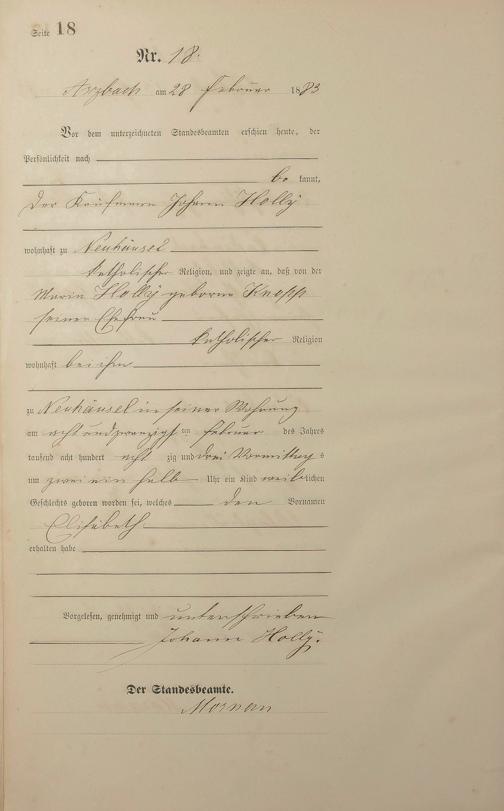 Seite 18
Nr. 18.
Arzbach am 28 Februar 1883
Vor dem unterzeichneten Standesbeamten erschien heute, der
Persönlichkeit nach
be kannt,
Der Kaufmann Johann Holly
wohnhaft zu Neuhäusel
katholischer Religion, und zeigte an, daß von der
Maria Holly geborne Knopp
seiner Ehefrau
katholischer Religion
wohnhaft bei ihm
zu Neuhäusel in seiner Wohnung
am acht und zwanzigsten Februar des Jahres
tausend acht hundert acht zig und drei Vormittags
um zwei ein halb Uhr ein Kind weiblichen
Geschlechts geboren worden sei, welches den Vornamen
Elisabeth
erhalten habe
Vorgelesen, genehmigt und unterschrieben
Johann Holly.
Der Standesbeamte.